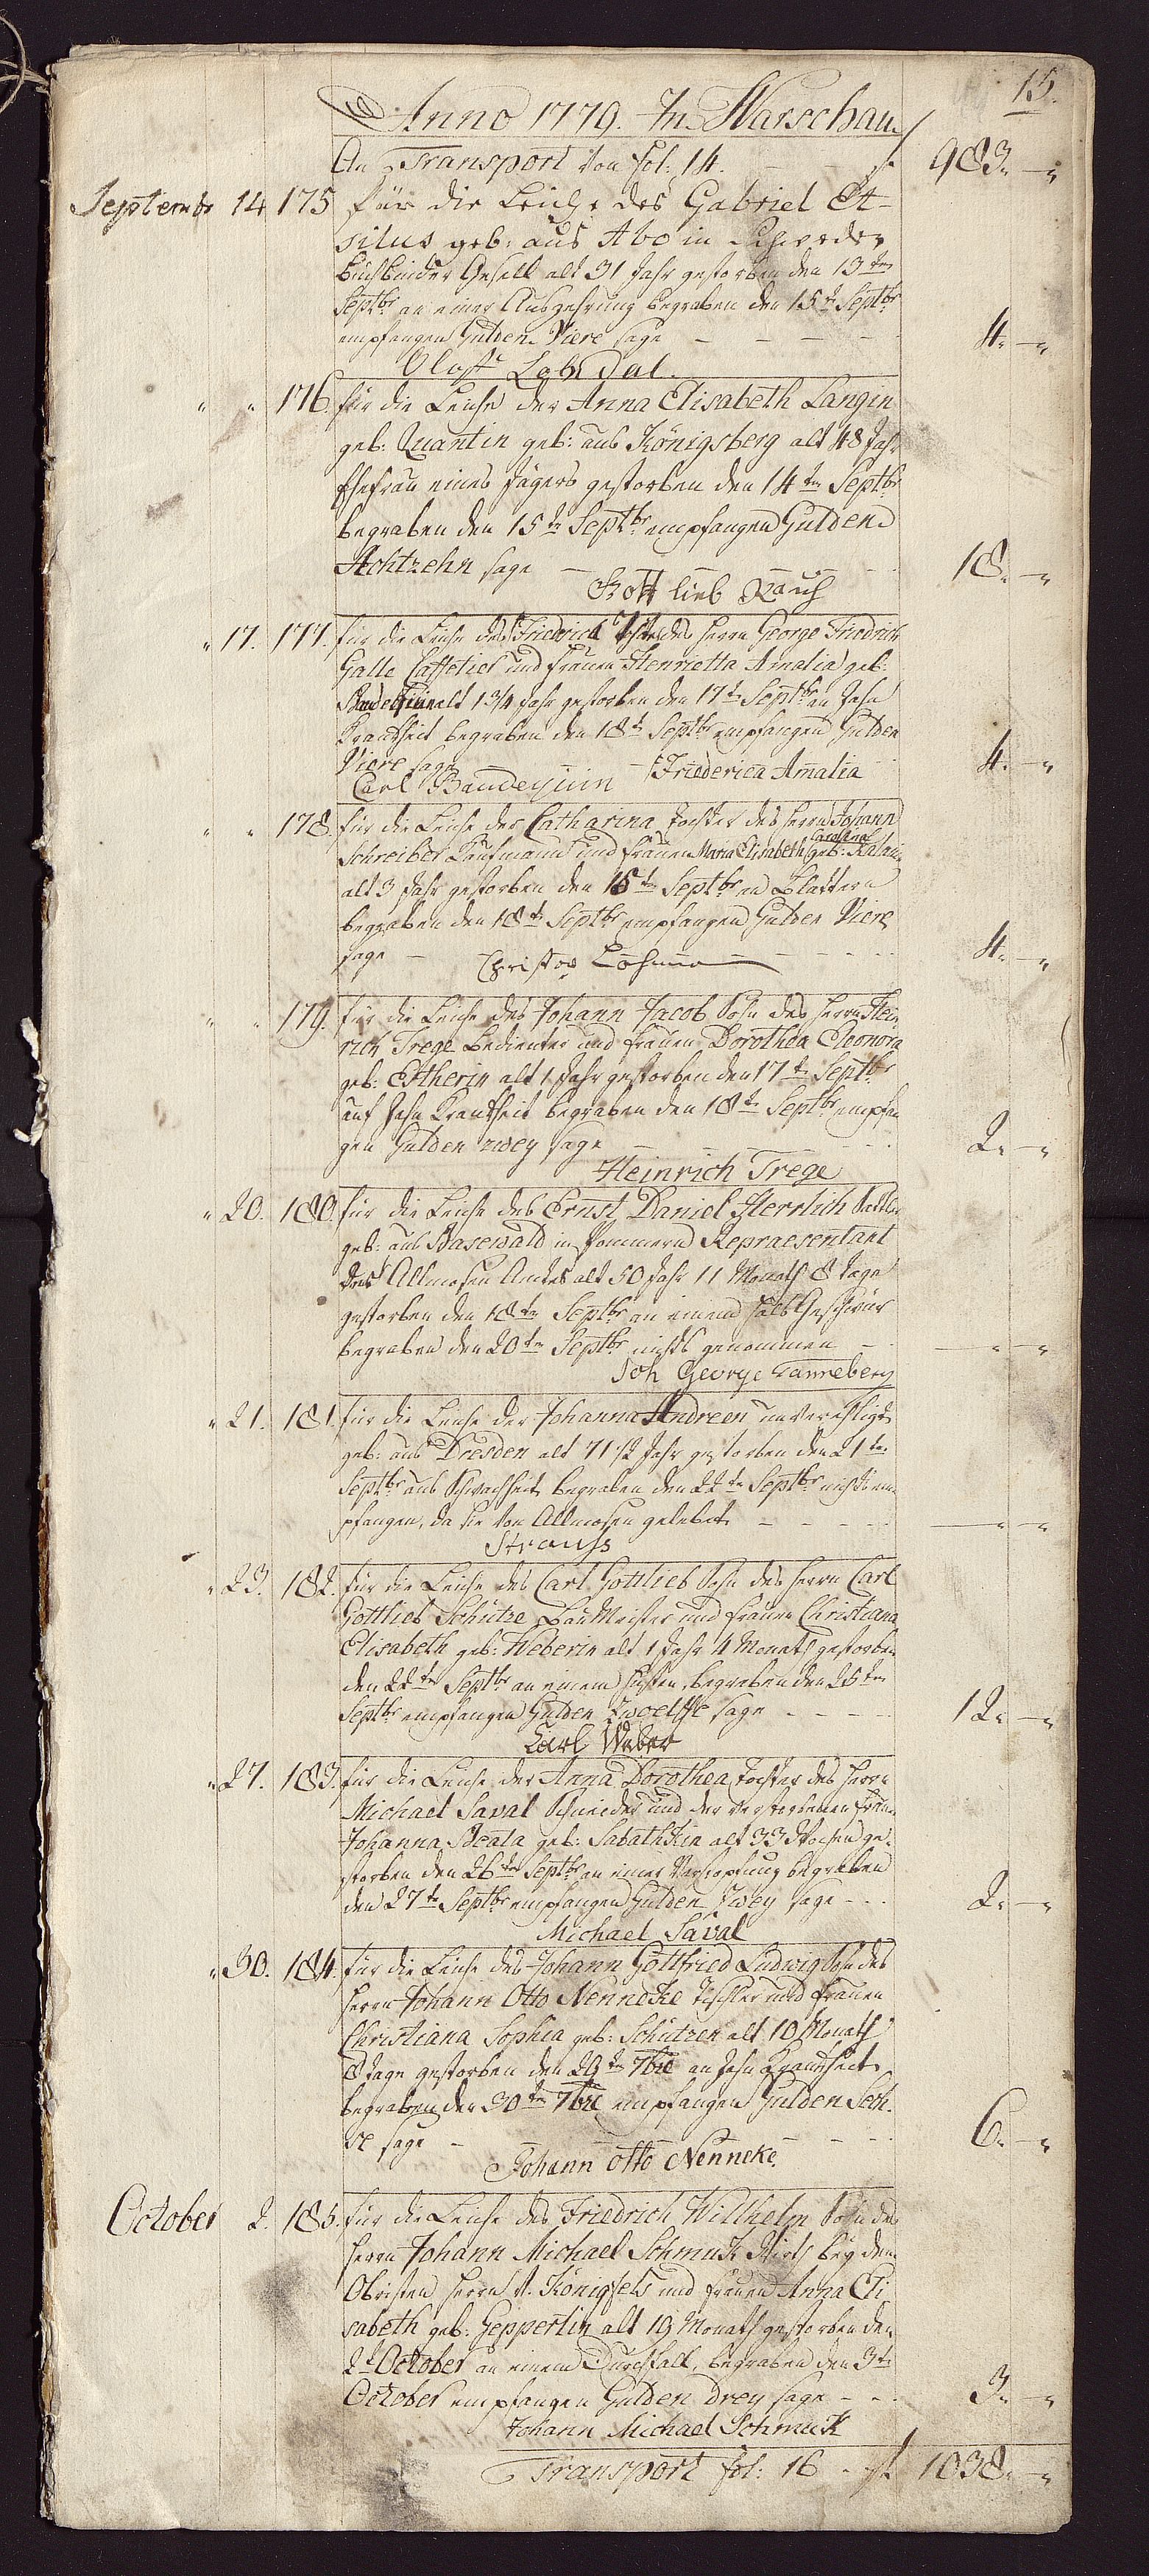 15.
Anno 1779. In Warschau
An Transport von fol: 14. — — f 983. — "
Septembr 14 175 für die Leiche des Gabriel Et-
silus geb: aus Abo in Schweden
Buchbinder Gesell alt 31 Jahr gestorben den 13ten
Septbr an einer Auszehrung begraben den 15tn Septbr
empfangen Gulden Viere sage — — — — 4. — "
Oloff Lahsdal.
" " 176. für die Leiche der Anna Elisabeth Langin
geb: Quantin geb: aus Königsberg alt 48 Jahr
Ehefrau eines Jägers gestorben den 14tn Septbr
begraben den 15tn Septbr empfangen Gulden
Achtzehn sage — — — — 18. — "
Gottlieb Rauch
" 17. 177. für die Leiche des Friedrich des Herrn George Friedrich
Galle Caffetier und Frauen Henrietta Amalia geb:
alt 1 3/4 Jahr gestorben den 17tn Septbr an Zahn
Krankheit begraben den 18tn Septbr empfangen Gulden
Viere sage — Friederica Amalia 4. — "
Carl Baudejuin
" " 178. für die Leiche der Catharina Tochter des Herrn Johann
Carolina
Schreiber Kaufmann und Frauen Maria Elisabeth geb:
alt 3 Jahr gestorben den 15tn Septbr an Blattern
begraben den 18tn Septbr empfangen Gulden Viere
sage — Christop Lohman — — — 4. — "
" " 179. für die Leiche des Johann Jacob Sohn des Herrn Hein
rich Trege Bedienter und Frauen Dorothea Eleonora
geb: Estherin alt 1 Jahr gestorben den 17tn Septbr
auf Zahn Krankheit begraben den 18tn Septbr empfan
gen Gulden zwey sage — — — 2. — "
Heinrich Trege
" 20. 180. für die Leiche des Ernst Daniel Herrlich Sattler
geb: aus Basewald in Pommern Repraesentant
des Allmosen Amtes alt 50 Jahr 11 Monath 8 Tage
gestorben den 18tn Septbr an einem Hals Geschwür
begraben den 20tn Septbr nichts genommen — " — "
Joh George Tanneberg
" 21. 181. für die Leiche der Johanna Andreen unverehligt
geb: aus Dresden alt 71 1/2 Jahr gestorben den 21tn
Septbr aus Schwachheit begraben den 22tn Septbr nichts em
pfangen, da sie von Allmosen gelebet — — — " — "
Strauss
" 23. 182. für die Leiche des Carl Gottlieb Sohn des Herrn Carl
Gottlieb Schütze BauMeister und Frauen Christiana
Elisabeth geb: Weberin alt 1 Jahr 4 Monath gestorben
den 22tn Septbr an einem Husten, begraben den 25tn
Septbr empfangen Gulden Zwoelffe sage — — — 12. — "
Carl Weber
" 27. 183. für die Leiche der Anna Dorothea Tochter des Herrn
Michael Saval Schneider und der verstorbenen Frau
Johanna Beata geb: Sabathkin alt 33 Wochen ge-
storben den 26tn Septbr an einer Verstopfung begraben
den 27tn Septbr empfangen Gulden Zwey sage — 2. — "
Michael Saval
" 30. 184. für die Leiche des Johann Gottfried Ludwig Sohn des
Herrn Johann Otto Nenneke Tischler und Frauen
Christiana Sophia geb: Schützen alt 10 Monath
8 Tage gestorben den 29tn 7bre an Zahn Krankheit
begraben den 30tn 7bre empfangen Gulden Sech-
se sage — — — — 6. — "
Johann Otto Nenneke.
October 2. 185. für die Leiche des Friedrich Willhelm Sohn des
Herrn Johann Michael Schmuck Wirth bey dem
Obristen Herrn v. Königfels und Frauen Anna Eli
sabeth geb: Geppertin alt 19 Monath gestorben den
2t October an einem Durchfall, begraben den 3tn
October empfangen Gulden drey sage — — 3. — "
Johann Michael Schmuck
Transport fol: 16 — f 1038. — "